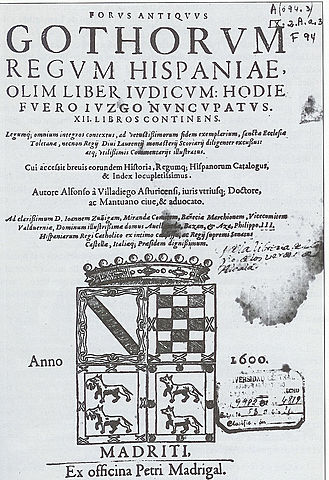 FORUS ANTIQVVS
GOTHORVM
REGVM HISPANIAE,
OLIM LIBER IVDICVM: HODIE
FVERO IVZGO NVNCVPATVS.
XII. LIBROS CONTINENS.
Legumq; omnium integros contextus, ad vetustissimorum fidem exemplarium, sanctæ Ecclesiæ
Toletanæ, necnon Regij Diui Laurentij monasterij Scoriaci diligenter excussus:
atq; vtilissimis Commentarijs illustratus.
Cui accessit breuis eorundem Historia, Regumq; Hispanorum Catalogus,
& Index locupletissimus.
Autore Alfonso à Villadiego Asturicensi, iuris vtriusq; Doctore,
ac Mantuano ciue, & aduocato.
Ad clarissimum D. Ioannem Zuñigam, Miranda Comitem, Marchionem, Vicecomitem
Valduerna, Dominum illustrissima domus Bazan, Philippo. III.
Hispaniarum Regis Catholico ex intimo ac Regij supremi Senatus
Castella, Italiaq; Præsidem dignissimum.
Anno 1600.
MADRITI,
Ex officina Petri Madrigal.
F 94